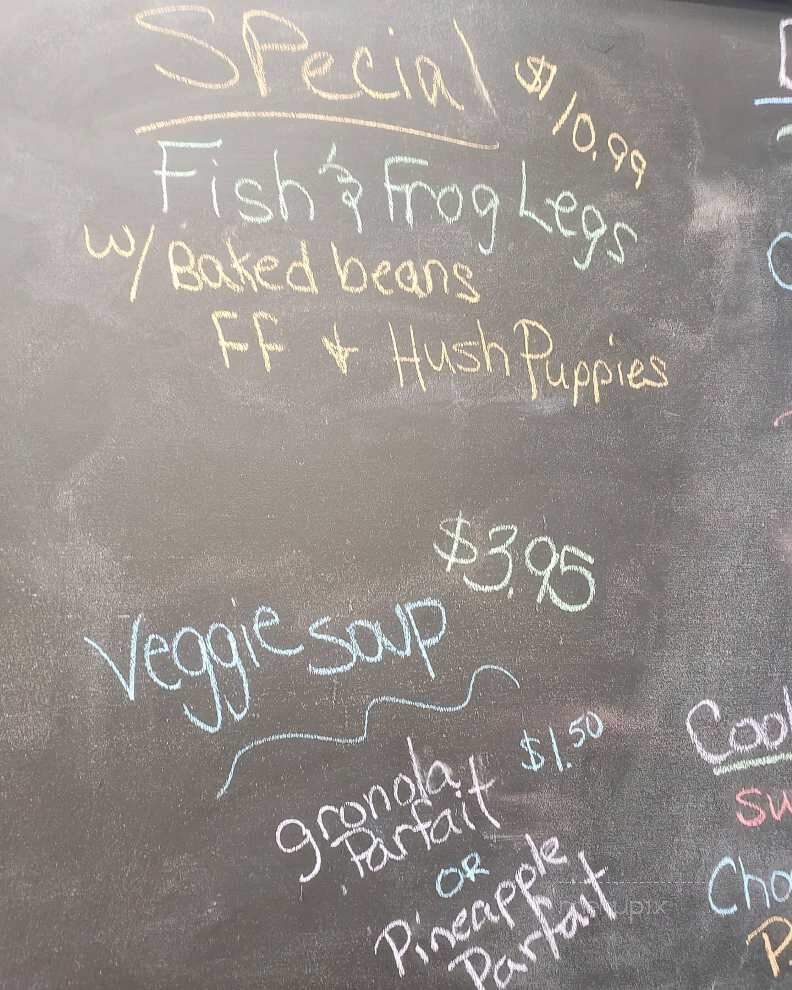 SPecial
$10.99
Fish & Frog Legs
w/ Baked beans
FF & Hush Puppies
$3.95
Veggie soup
$1.50
gronola
Parfait
OR
Pineapple
Parfait